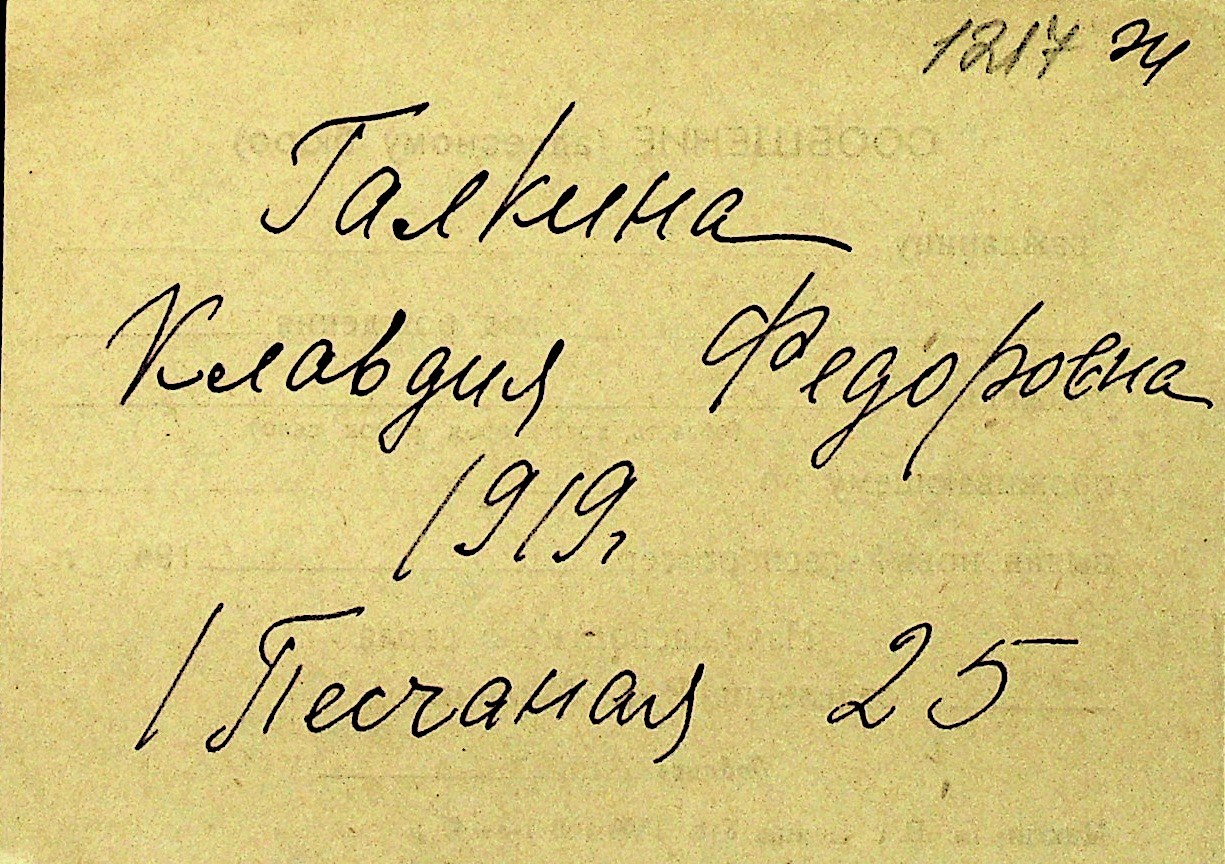 1217 ж
Галкина
Клавдия Федоровна
1919г
1 Песчаная 25